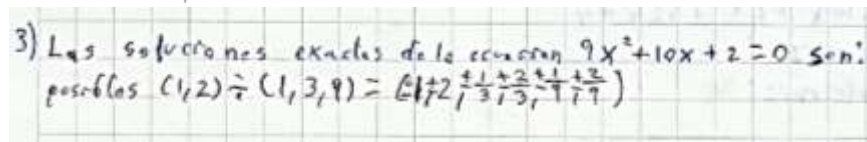 3) Las soluciones exactas de la ecuacion 9x²+10x+2=0 son:
posibles (1,2) ÷ (1,3,9) = (±1, ±2, ±1/3, ±2/3, ±1/9, ±2/9)